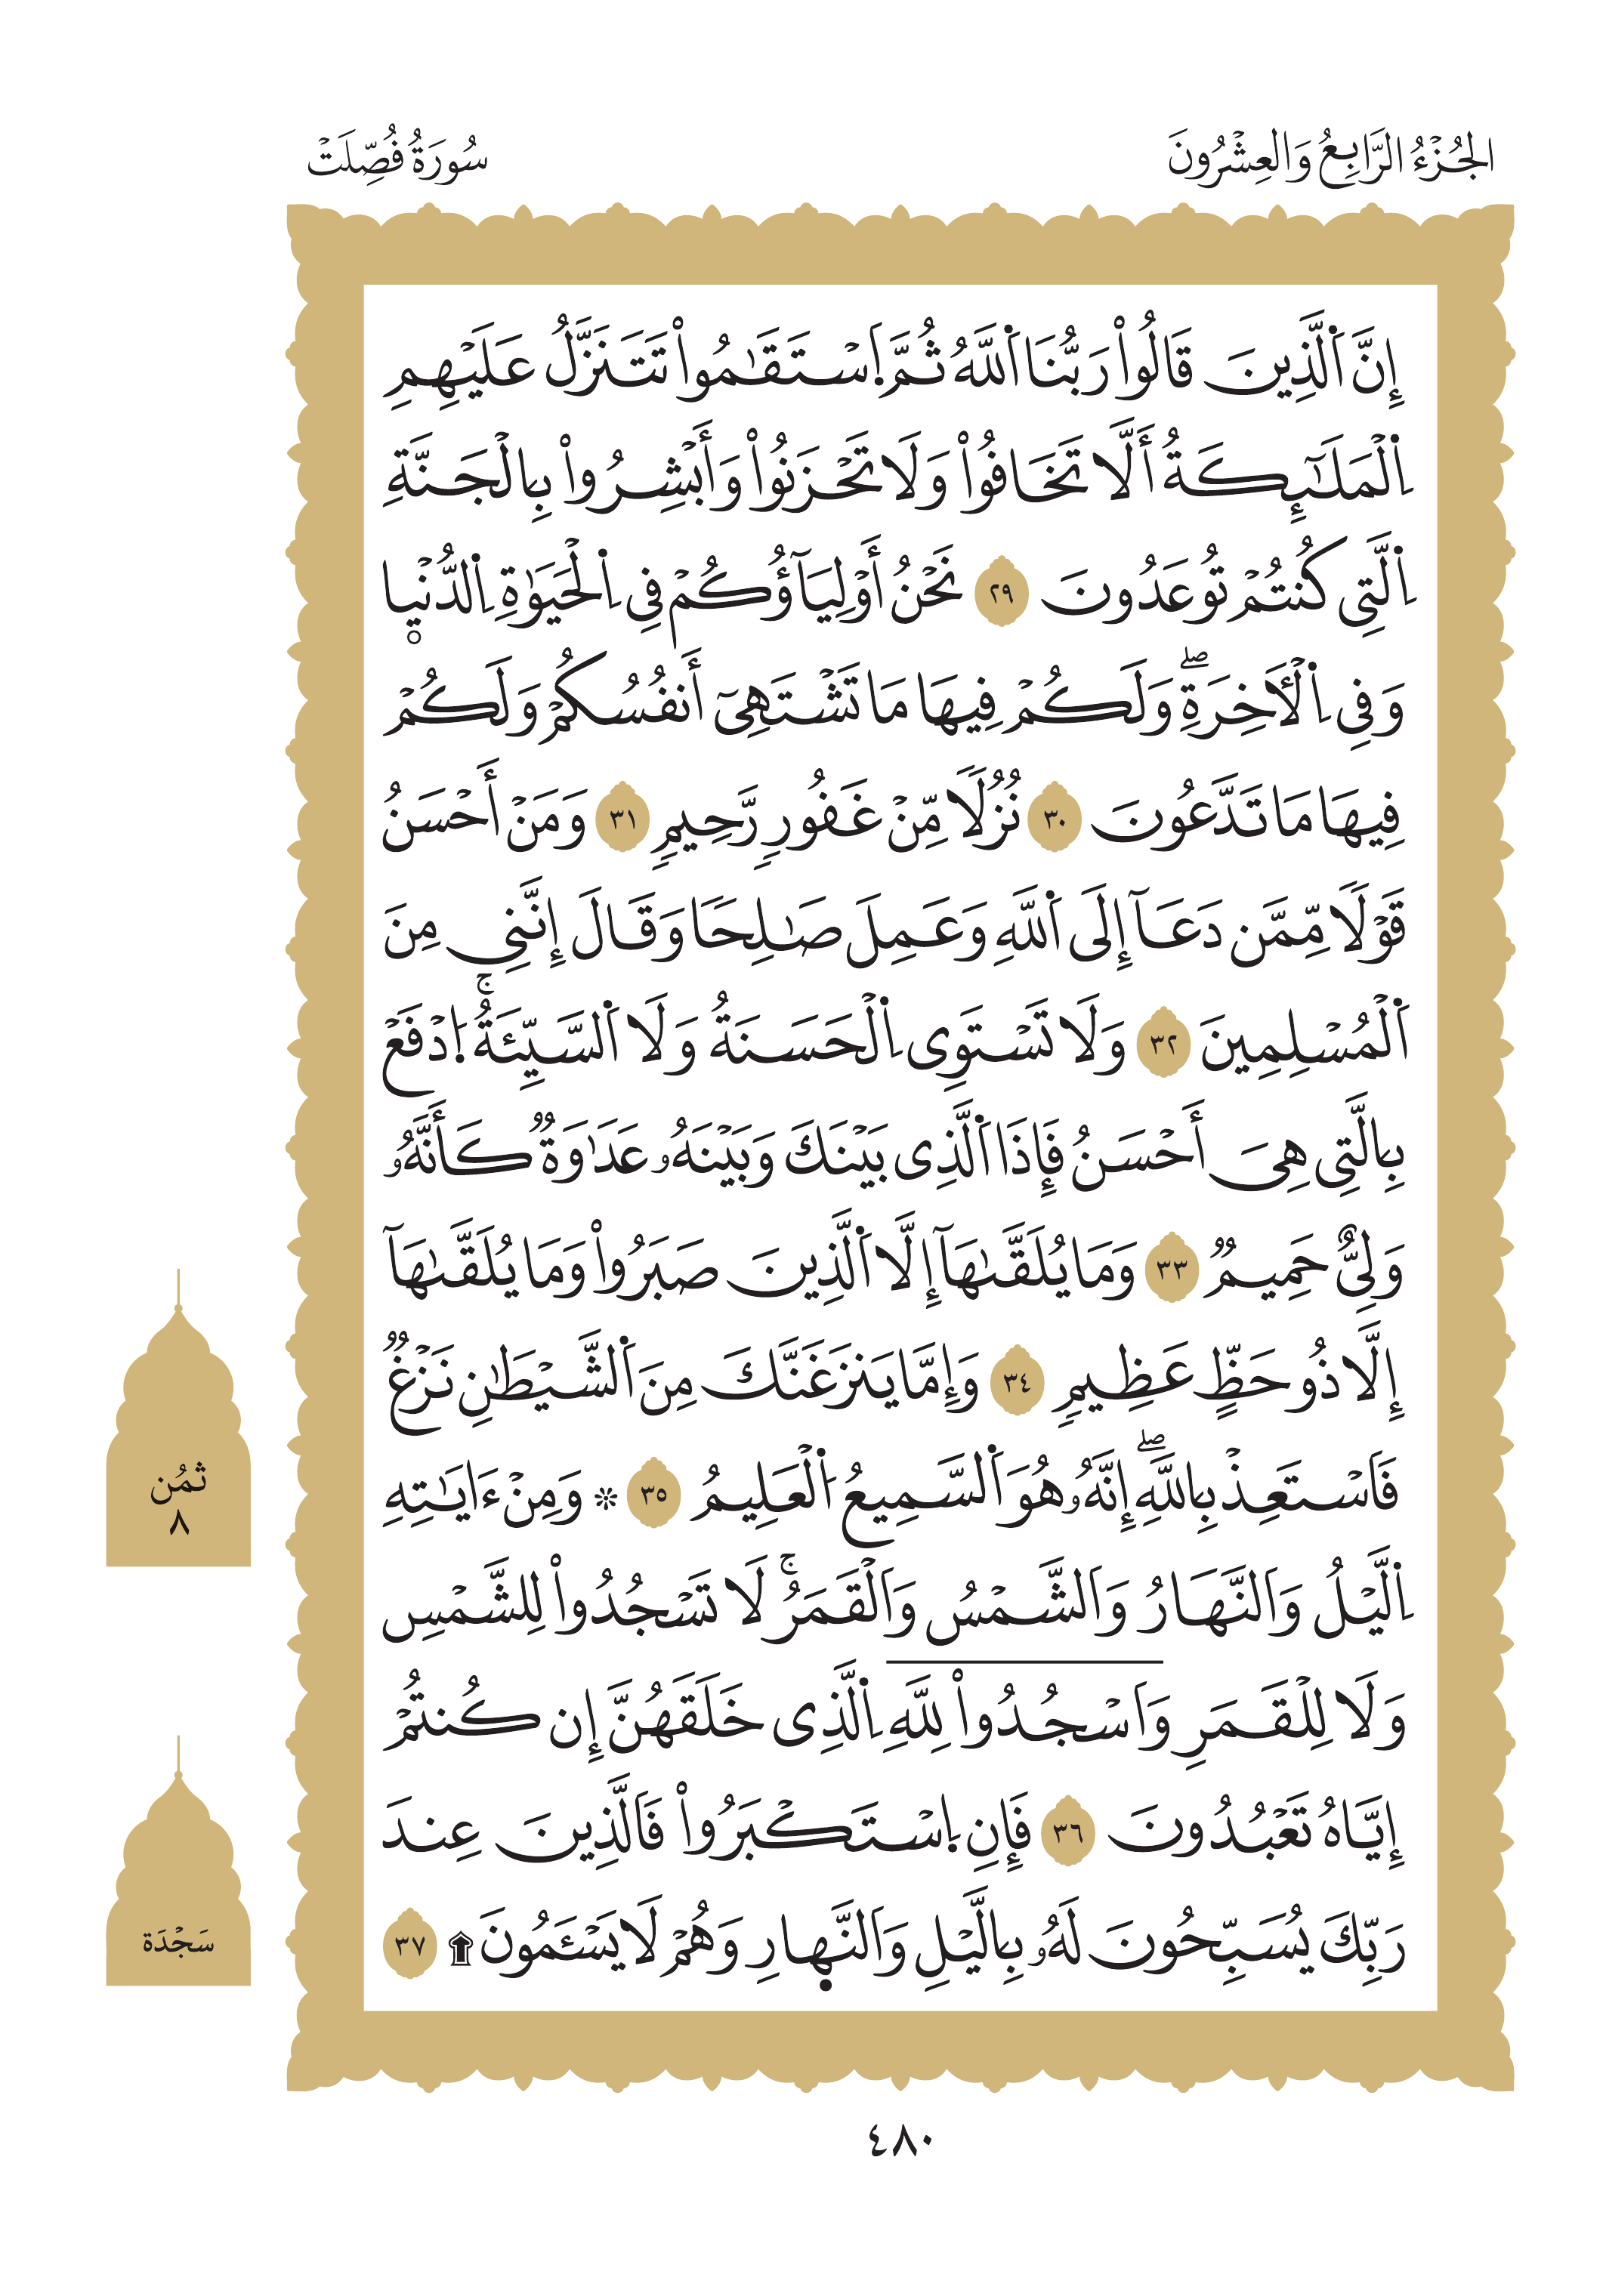 الجُزْءُ الرَّابِعُ وَالعِشْرُونَ
سُورَةُ فُصِّلَتْ
إِنَّ اَ۬لذِينَ قَالُواْ رَبُّنَا اَ۬للَّهُ ثُمَّ اَ۪سْتَقَٰمُواْ تَتَنَزَّلُ عَلَيْهِمِ
اِ۬لْمَلَٰٓئِكَةُ أَلَّا تَخَافُواْ وَلَا تَحْزَنُواْ وَأَبْشِرُواْ بِالْجَنَّةِ
اِ۬لتِي كُنتُمْ تُوعَدُونَ ٢٩ نَحْنُ أَوْلِيَآؤُكُمْ فِي اِ۬لْحَيَوٰةِ اِ۬لدُّنْي۪ا
وَفِي اِ۬لْأٓخِرَةِۖ وَلَكُمْ فِيهَا مَا تَشْتَهِيٓ أَنفُسُكُمْ وَلَكُمْ
فِيهَا مَا تَدَّعُونَ ٣٠ نُزُلاٗ مِّنْ غَفُورٖ رَّحِيمٖ ٣١ وَمَنْ أَحْسَنُ
قَوْلاٗ مِّمَّن دَعَآ إِلَى اَ۬للَّهِ وَعَمِلَ صَٰلِحاٗ وَقَالَ إِنَّنِي مِنَ
اَ۬لْمُسْلِمِينَ ٣٢ وَلَا تَسْتَوِي اِ۬لْحَسَنَةُ وَلَا اَ۬لسَّيِّئَةُۚ اُ۪دْفَعْ
بِالتِي هِيَ أَحْسَنُ فَإِذَا اَ۬لذِي بَيْنَكَ وَبَيْنَهُۥ عَدَٰوَةٞ كَأَنَّهُۥ
وَلِيٌّ حَمِيمٞ ٣٣ وَمَا يُلَقَّىٰهَآ إِلَّا اَ۬لذِينَ صَبَرُواْ وَمَا يُلَقَّىٰهَآ
إِلَّا ذُو حَظٍّ عَظِيمٖ ٣٤ وَإِمَّا يَنزَغَنَّكَ مِنَ اَ۬لشَّيْطَٰنِ نَزْغٞ
فَاسْتَعِذْ بِاللَّهِۖ إِنَّهُۥ هُوَ اَ۬لسَّمِيعُ اُ۬لْعَلِيمُ ٣٥ ۞ وَمِنْ ءَايَٰتِهِ
اِ۬ليْلُ وَالنَّهَارُ وَالشَّمْسُ وَالْقَمَرُۚ لَا تَسْجُدُواْ لِلشَّمْسِ
وَلَا لِلْقَمَرِ وَاسْجُدُواْ لِلهِ اِ۬لذِي خَلَقَهُنَّ إِن كُنتُمْ
إِيَّاهُ تَعْبُدُونَ ٣٦ فَإِنِ اِ۪سْتَكْبَرُواْ فَالذِينَ عِندَ
رَبِّكَ يُسَبِّحُونَ لَهُۥ بِاليْلِ وَالنَّه۪ارِ وَهُمْ لَا يَسْـَٔمُونَ۩ ٣٧
ثُمُن
٨
سَجْدَة
٤٨٠